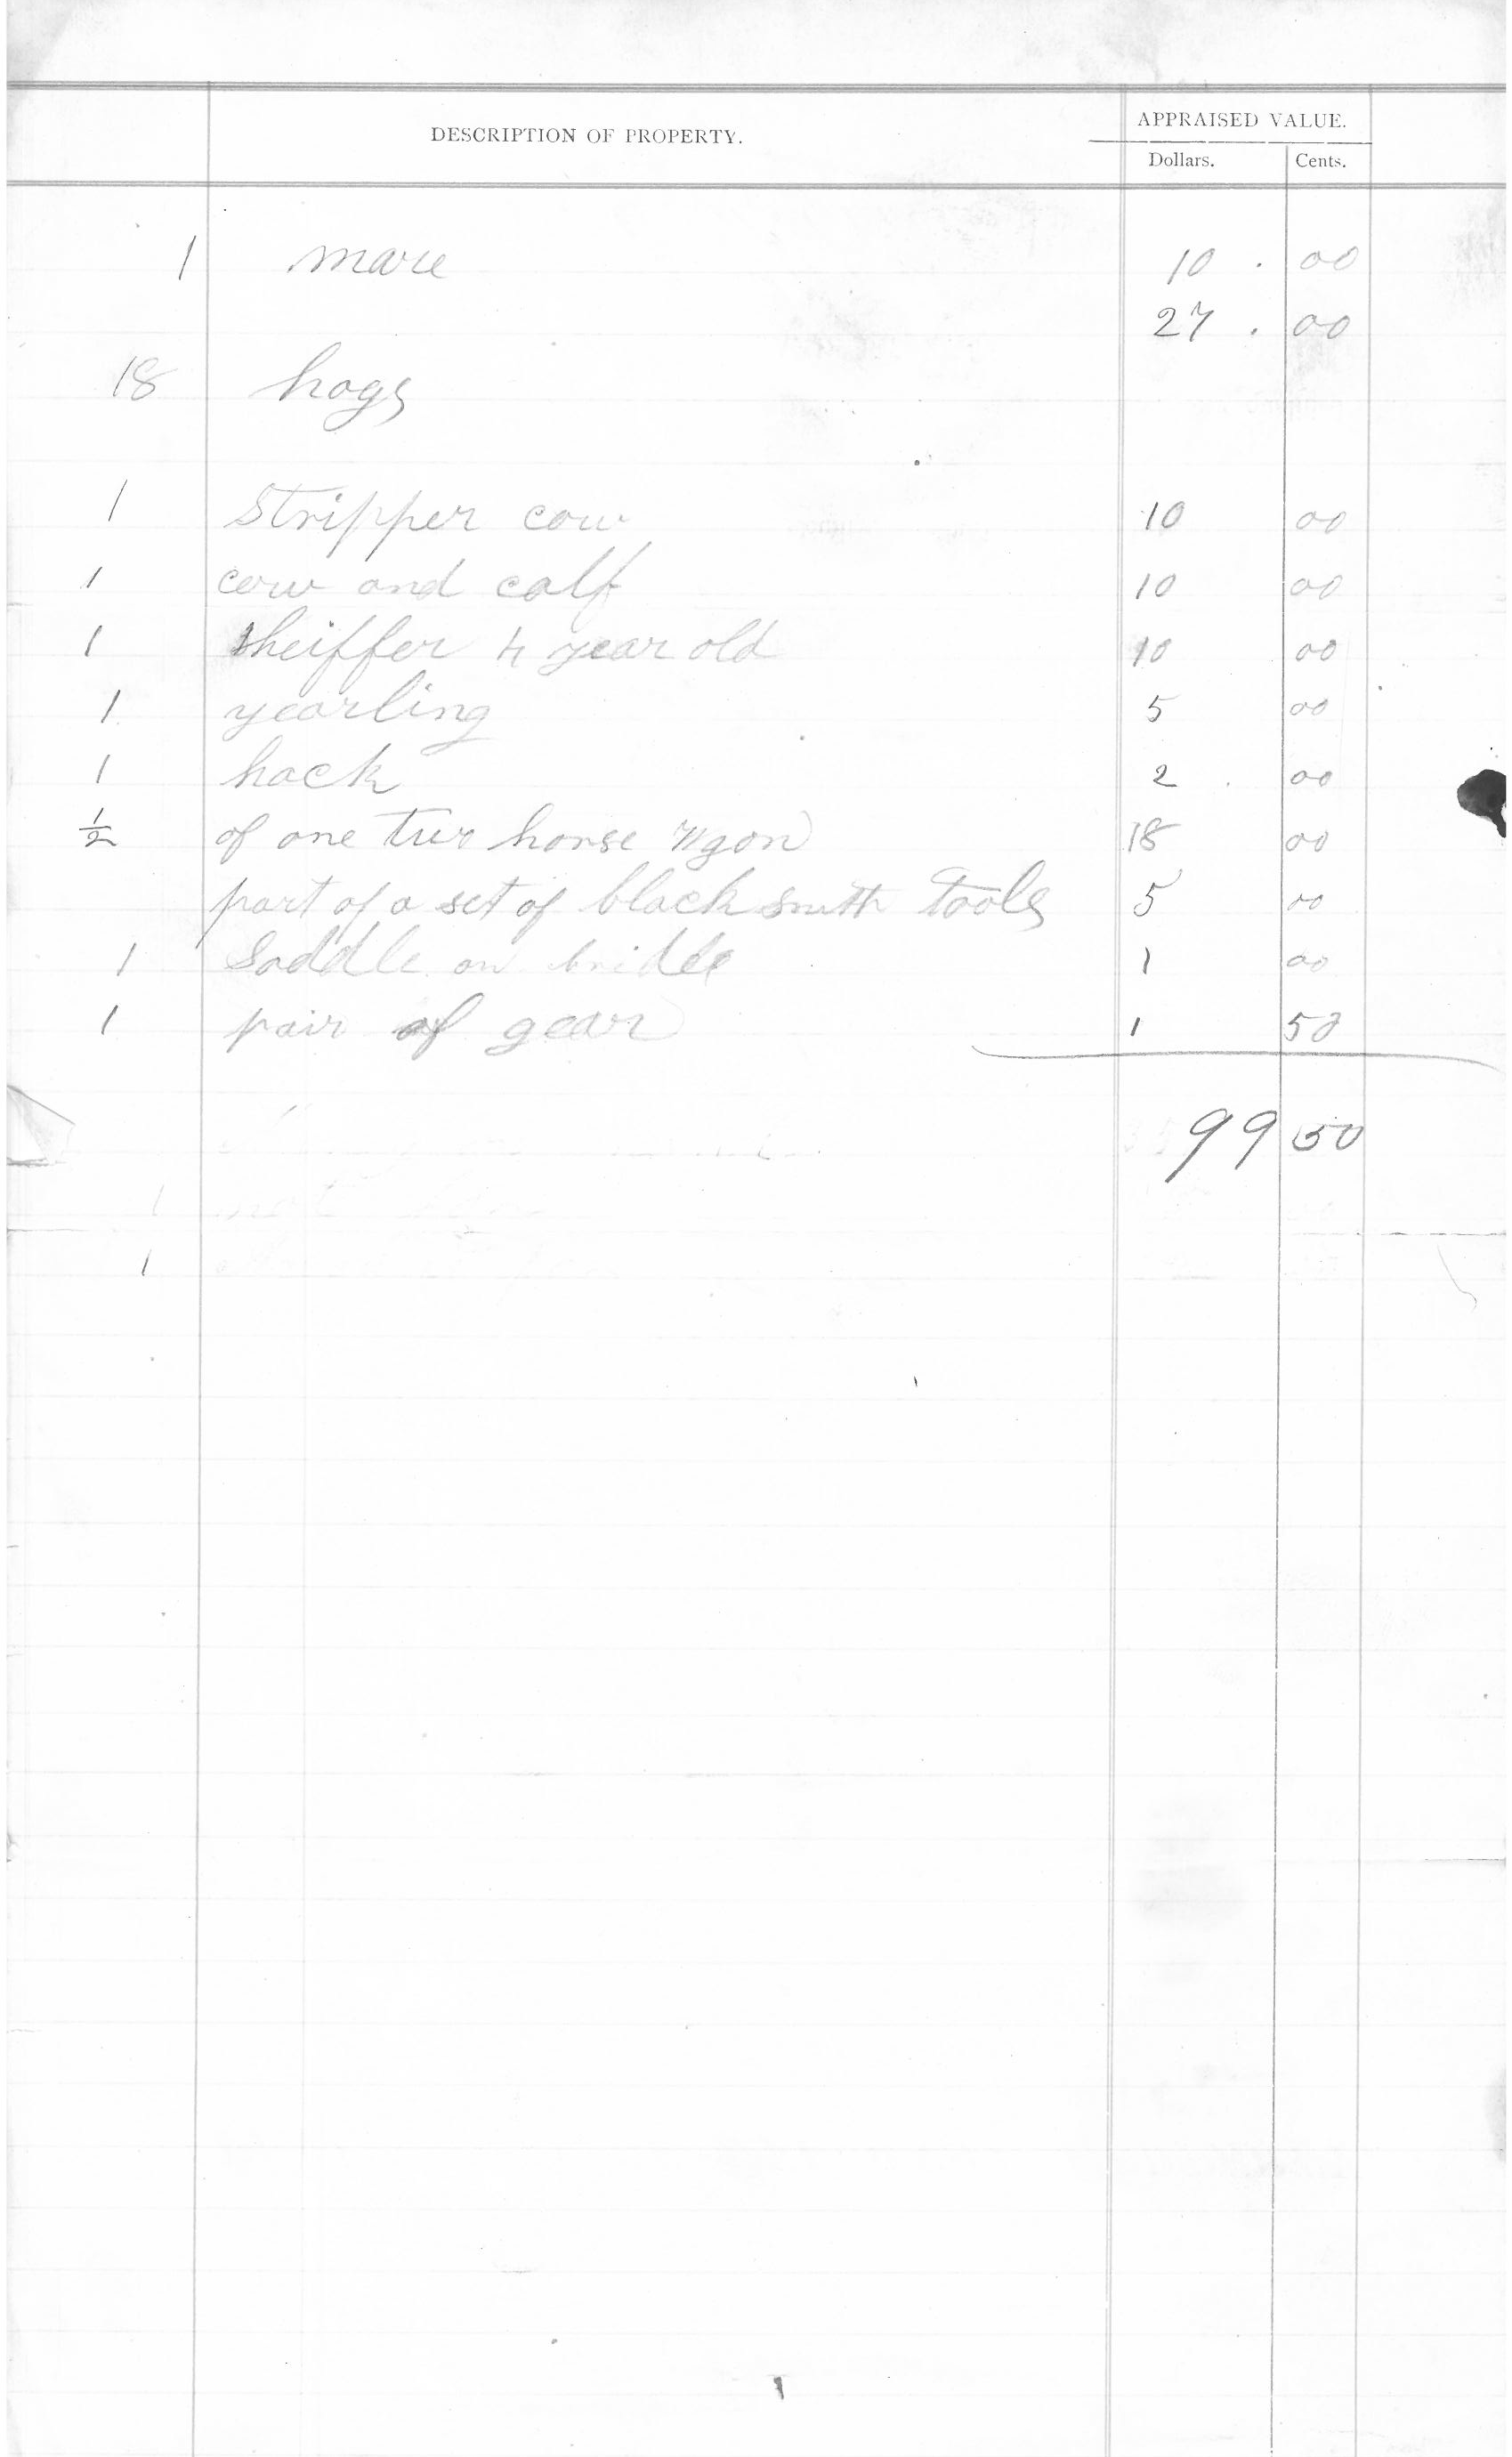 DESCRIPTION OF PROPERTY. APPRAISED VALUE.
Dollars. Cents.
1 mare 10 . 00
27 . 00
18 hogs
1 Stripper cow 10 00
1 cow and calf 10 00
1 heiffer 4 year old 10 00
1 yearling 5 00
1 hack 2 00
1/2 of one two horse wgon 18 00
part of a set of black smith Tools 5 00
1 Saddle on bridle 1 00
1 pair of gear 1 50
99 50
1
1